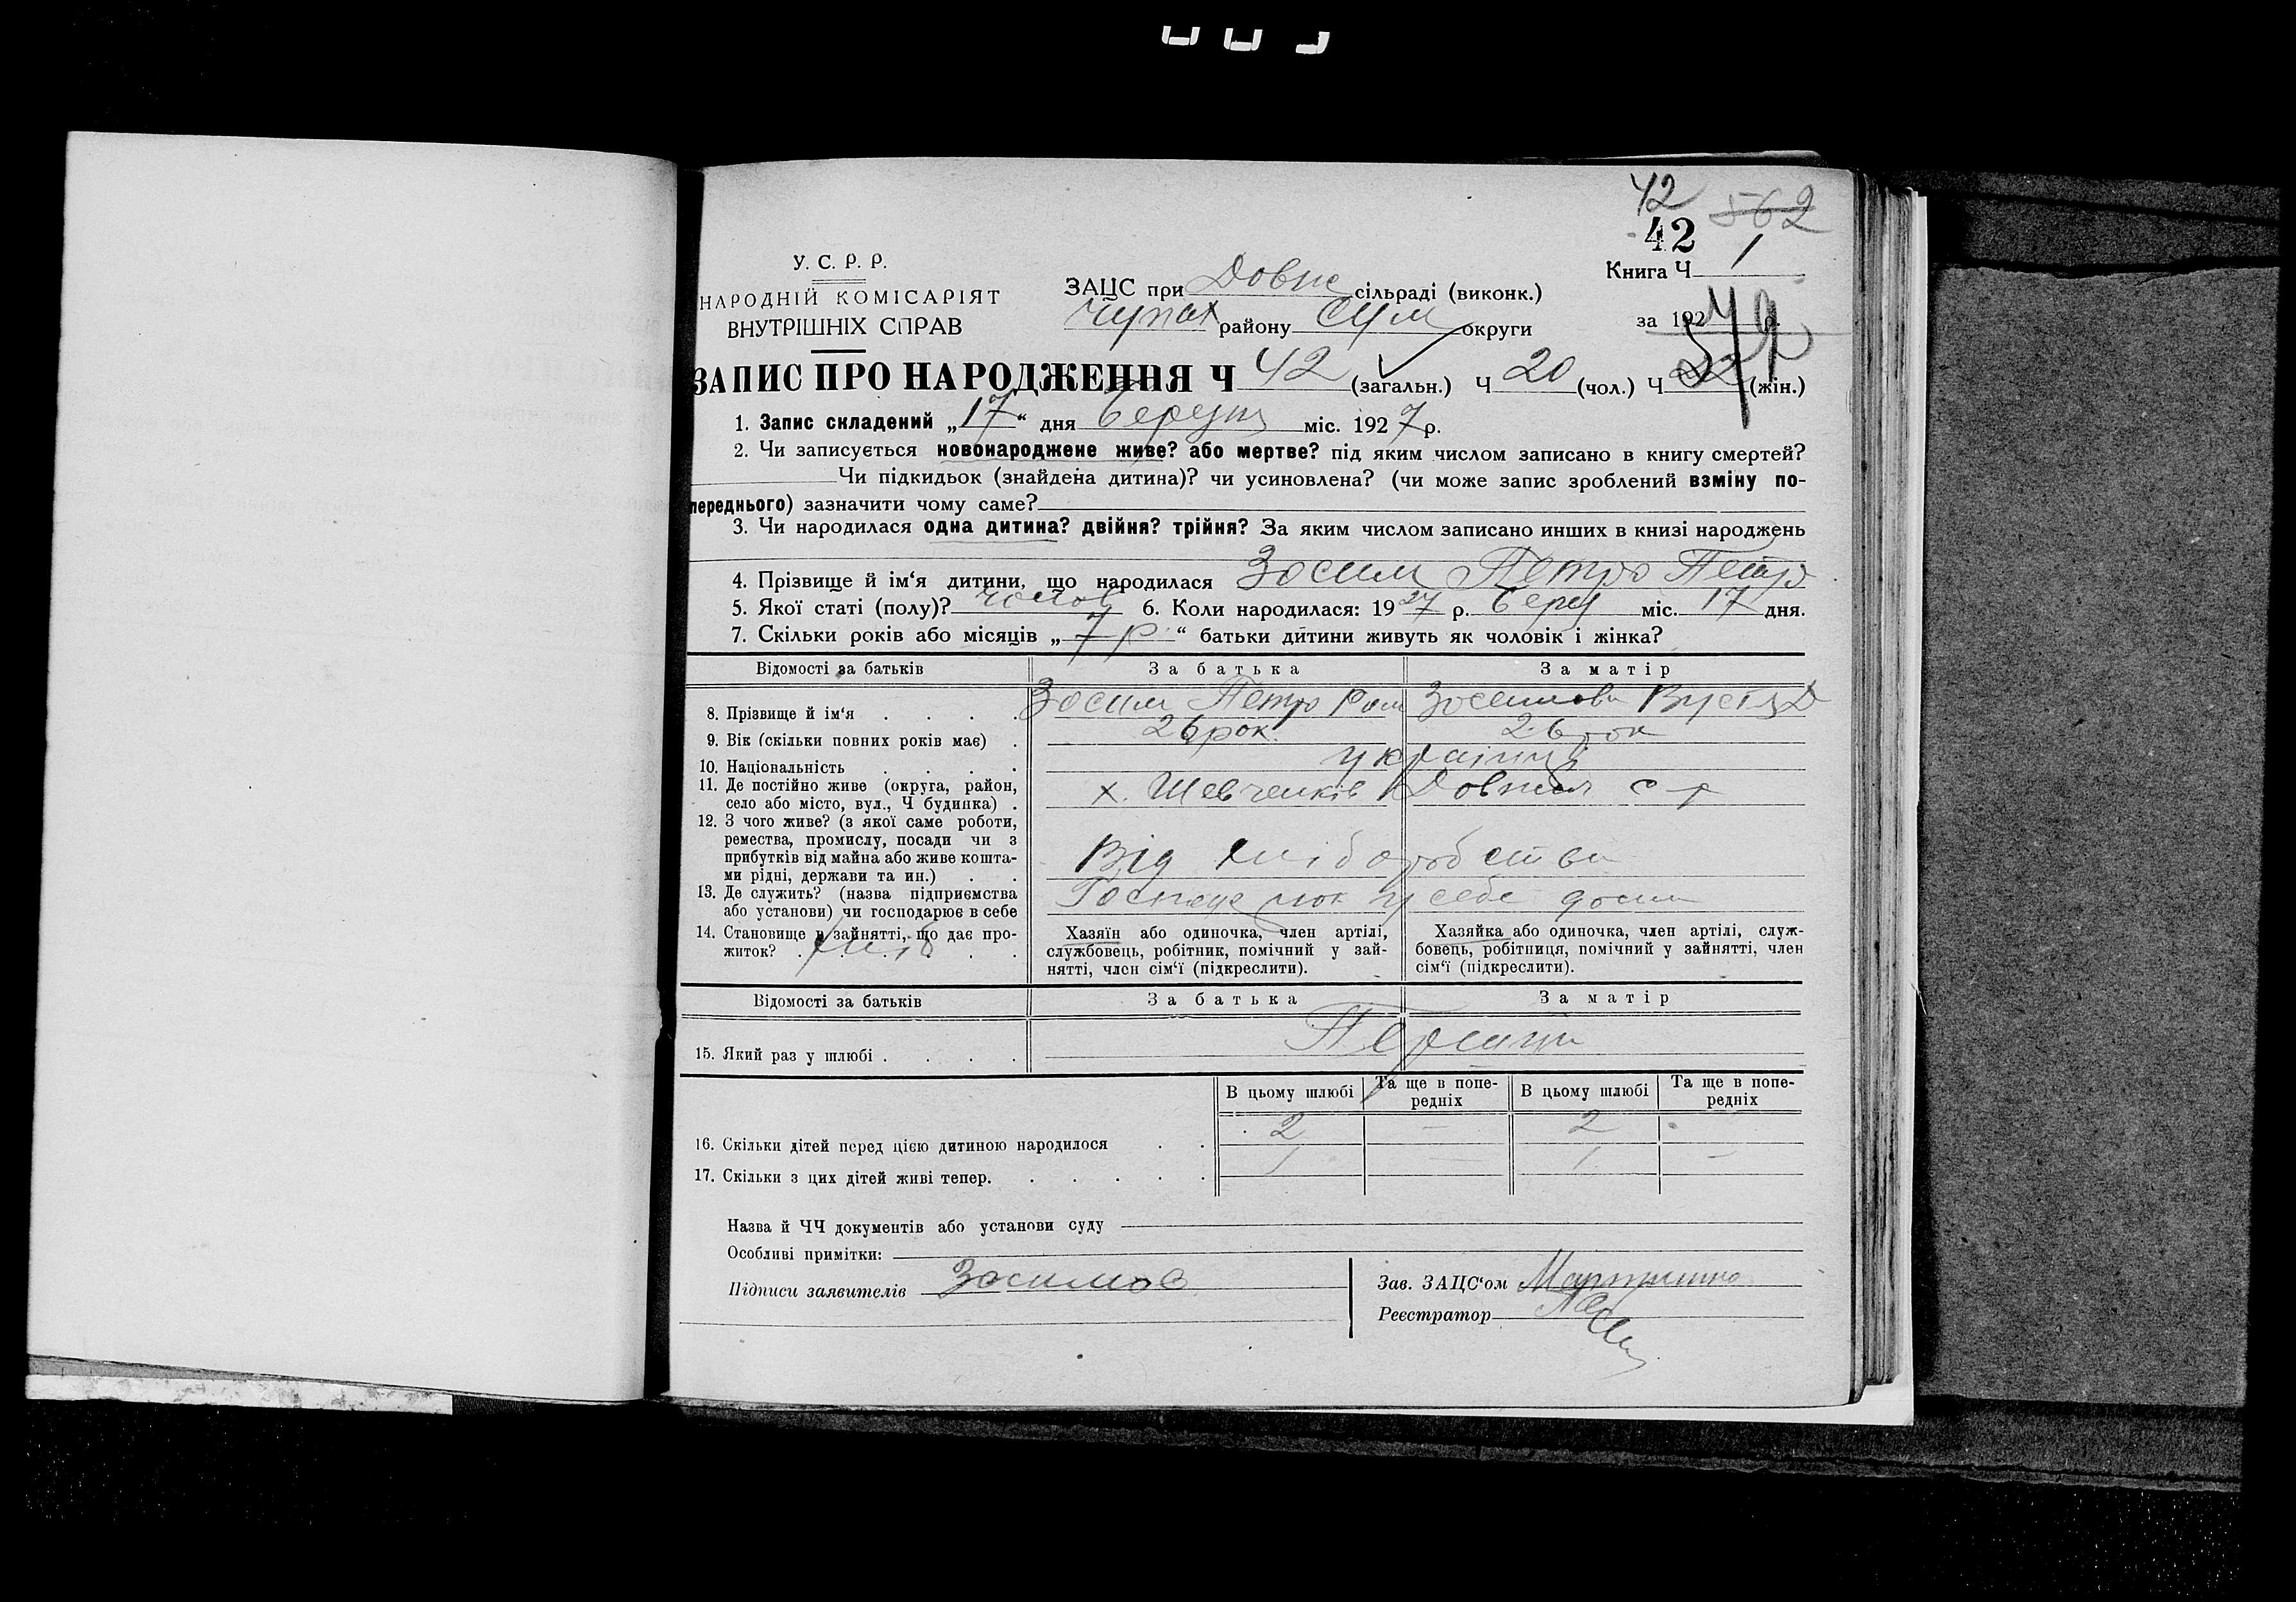 42 562
42
Книга Ч 1
У. С. Р. Р.
НАРОДНІЙ КОМІСАРІЯТ
ВНУТРІШНІХ СПРАВ
ЗАЦС при Довж сільраді (виконк.)
Чупах району Сум округи
за 192 р.
ЗАПИС ПРО НАРОДЖЕННЯ Ч 42 (загальн.) Ч 20 (чол.) Ч 22 (жін.)
1. Запис складений „17“ дня березня міс. 1927 р.
2. Чи записується новонароджене живе? або мертве? під яким числом записано в книгу смертей?
Чи підкидьок (знайдена дитина)? чи усиновлена? (чи може запис зроблений взміну по-
переднього) зазначити чому саме?
3. Чи народилася одна дитина? двійня? трійня? За яким числом записано инших в книзі народжень
4. Прізвище й ім‘я дитини, що народилася Зосим Петро Петр
5. Якої статі (полу)? чолов 6. Коли народилася: 1927 р. берез міс. 17 дня.
7. Скільки років або місяців „7 р“ батьки дитини живуть як чоловік і жінка?
Відомості за батьків За батька За матір
8. Прізвище й ім‘я Зосим Петро Ром Зосимова Вустя Д
9. Вік (скільки повних років має) 26 рок. 26 рок
10. Національність українці
11. Де постійно живе (округа, район,
село або місто, вул., Ч будинка) х. Шевченків Довжик с-р
12. З чого живе? (з якої саме роботи,
ремества, промислу, посади чи з
прибутків від майна або живе кошта-
ми рідні, держави та ин.) Від хліборобства
13. Де служить? (назва підприємства
або установи) чи господарює в себе у себе дома
14. Становище в зайнятті, що дає про-
житок? хліб
Хазяїн або одиночка, член артілі,
службовець, робітник, помічний у зай-
нятті, член сім‘ї (підкреслити).
Хазяйка або одиночка, член артілі, служ-
бовець, робітниця, помічний у зайнятті, член
сім‘ї (підкреслити).
Відомості за батьків За батька За матір
15. Який раз у шлюбі
В цьому шлюбі Та ще в попе-
редніх В цьому шлюбі Та ще в попе-
редніх
16. Скільки дітей перед цією дитиною народилося 2 — 2
17. Скільки з цих дітей живі тепер. 1 — 1 —
Назва й ЧЧ документів або установи суду
Особливі примітки:
Підписи заявителів Зосимов
Зав. ЗАЦС‘ом
Реєстратор